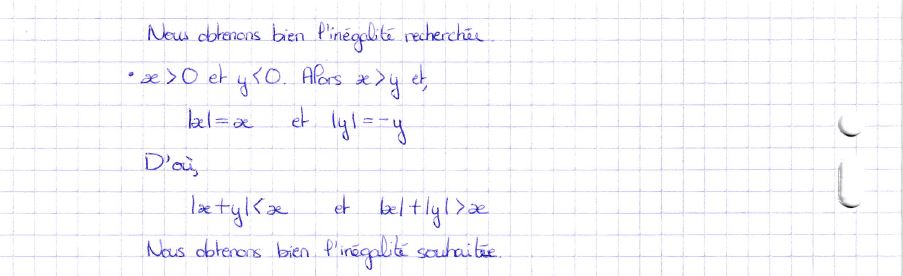 Nous obtenons bien l'inégalité recherchée.
• x>0 et y<0. Alors x>y et,
|x|=x et |y|=-y
D'où,
|x+y|<x et |x|+|y|>x
Nous obtenons bien l'inégalité souhaitée.